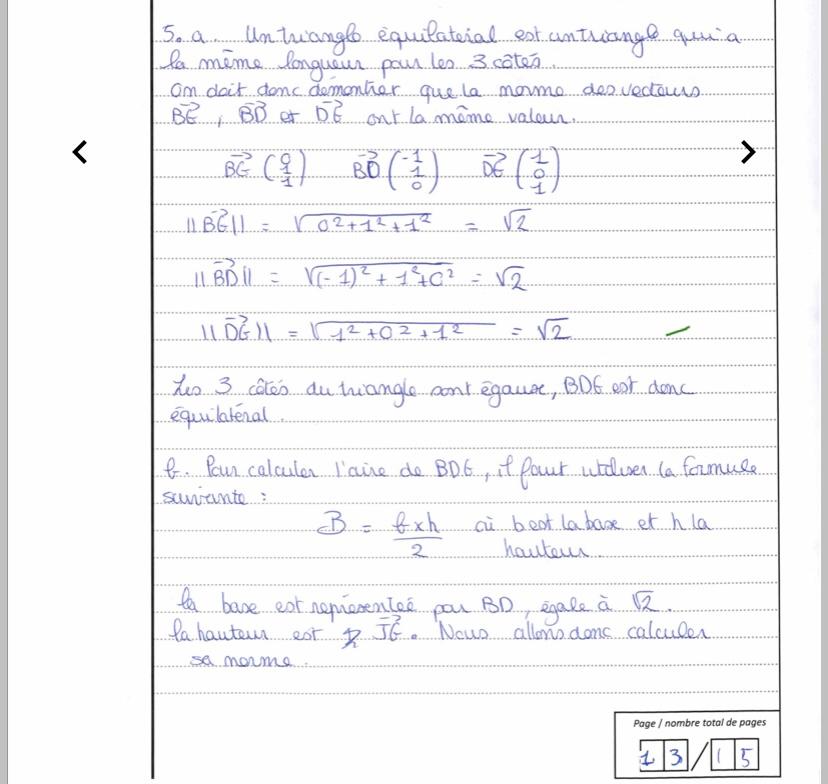 5. a. Un triangle équilatéral est un triangle qui a
la même longueur pour les 3 côtés.
On doit donc démontrer que la norme des vecteurs
BG, BD et DG ont la même valeur.
BG (0 1 1) BD (-1 1 0) DG (1 0 1)
||BG|| = √(0²+1²+1²) = √2
||BD|| = √((-1)²+1²+0²) = √2
||DG|| = √(1²+0²+1²) = √2
Les 3 côtés du triangle sont égaux, BDG est donc
équilatéral.
b. Pour calculer l'aire de BDG, il faut utiliser la formule
suivante :
B = b×h/2 où b est la base et h la
hauteur.
la base est représentée par BD, égale à √2.
la hauteur est JG. Nous allons donc calculer
sa norme.
Page / nombre total de pages
13/15